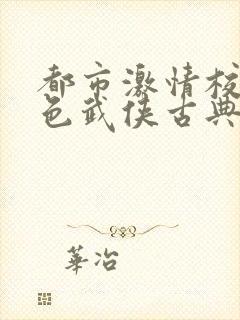 都市激情校
色武侠古典
華冶